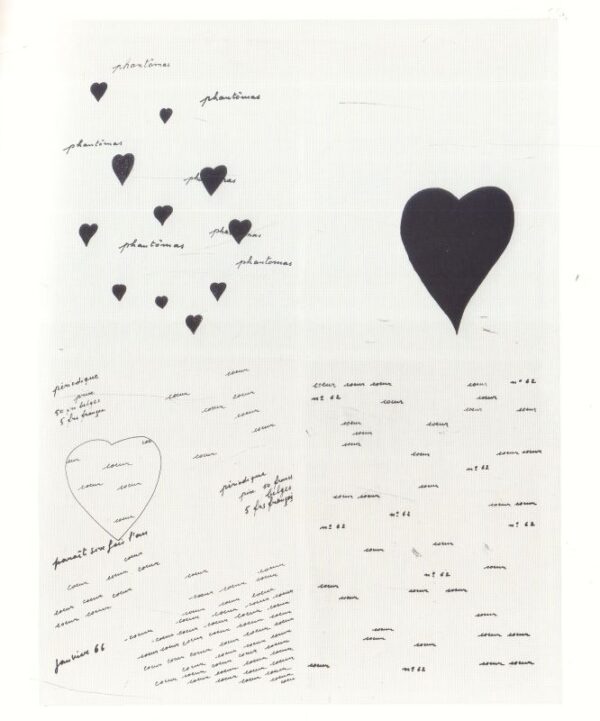 phantômas
phantômas
phantômas
phantômas
phantomas
périodique
prix
50 frs belges
5 frs français
coeur
coeur coeur
coeur coeur
coeur
coeur
coeur
coeur
coeur coeur
coeur
périodique
prix 50 francs
belges
5 frs français
paraît six fois l'an
coeur
coeur coeur coeur
coeur coeur coeur
coeur coeur
janvier 66
coeur coeur
coeur coeur coeur
coeur coeur coeur
coeur coeur coeur coeur
coeur coeur coeur coeur coeur
coeur coeur coeur coeur coeur
coeur coeur coeur coeur coeur
coeur coeur coeur coeur coeur
coeur coeur coeur coeur
coeur coeur coeur coeur nº 62
nº 62 coeur coeur
coeur coeur
coeur coeur
coeur
coeur coeur coeur
nº 62
coeur
coeur coeur coeur coeur
nº 62
nº 62 nº 62
coeur coeur
coeur
nº 62
coeur coeur coeur
coeur
coeur
coeur
coeur coeur coeur
coeur
coeur nº 62 coeur coeur